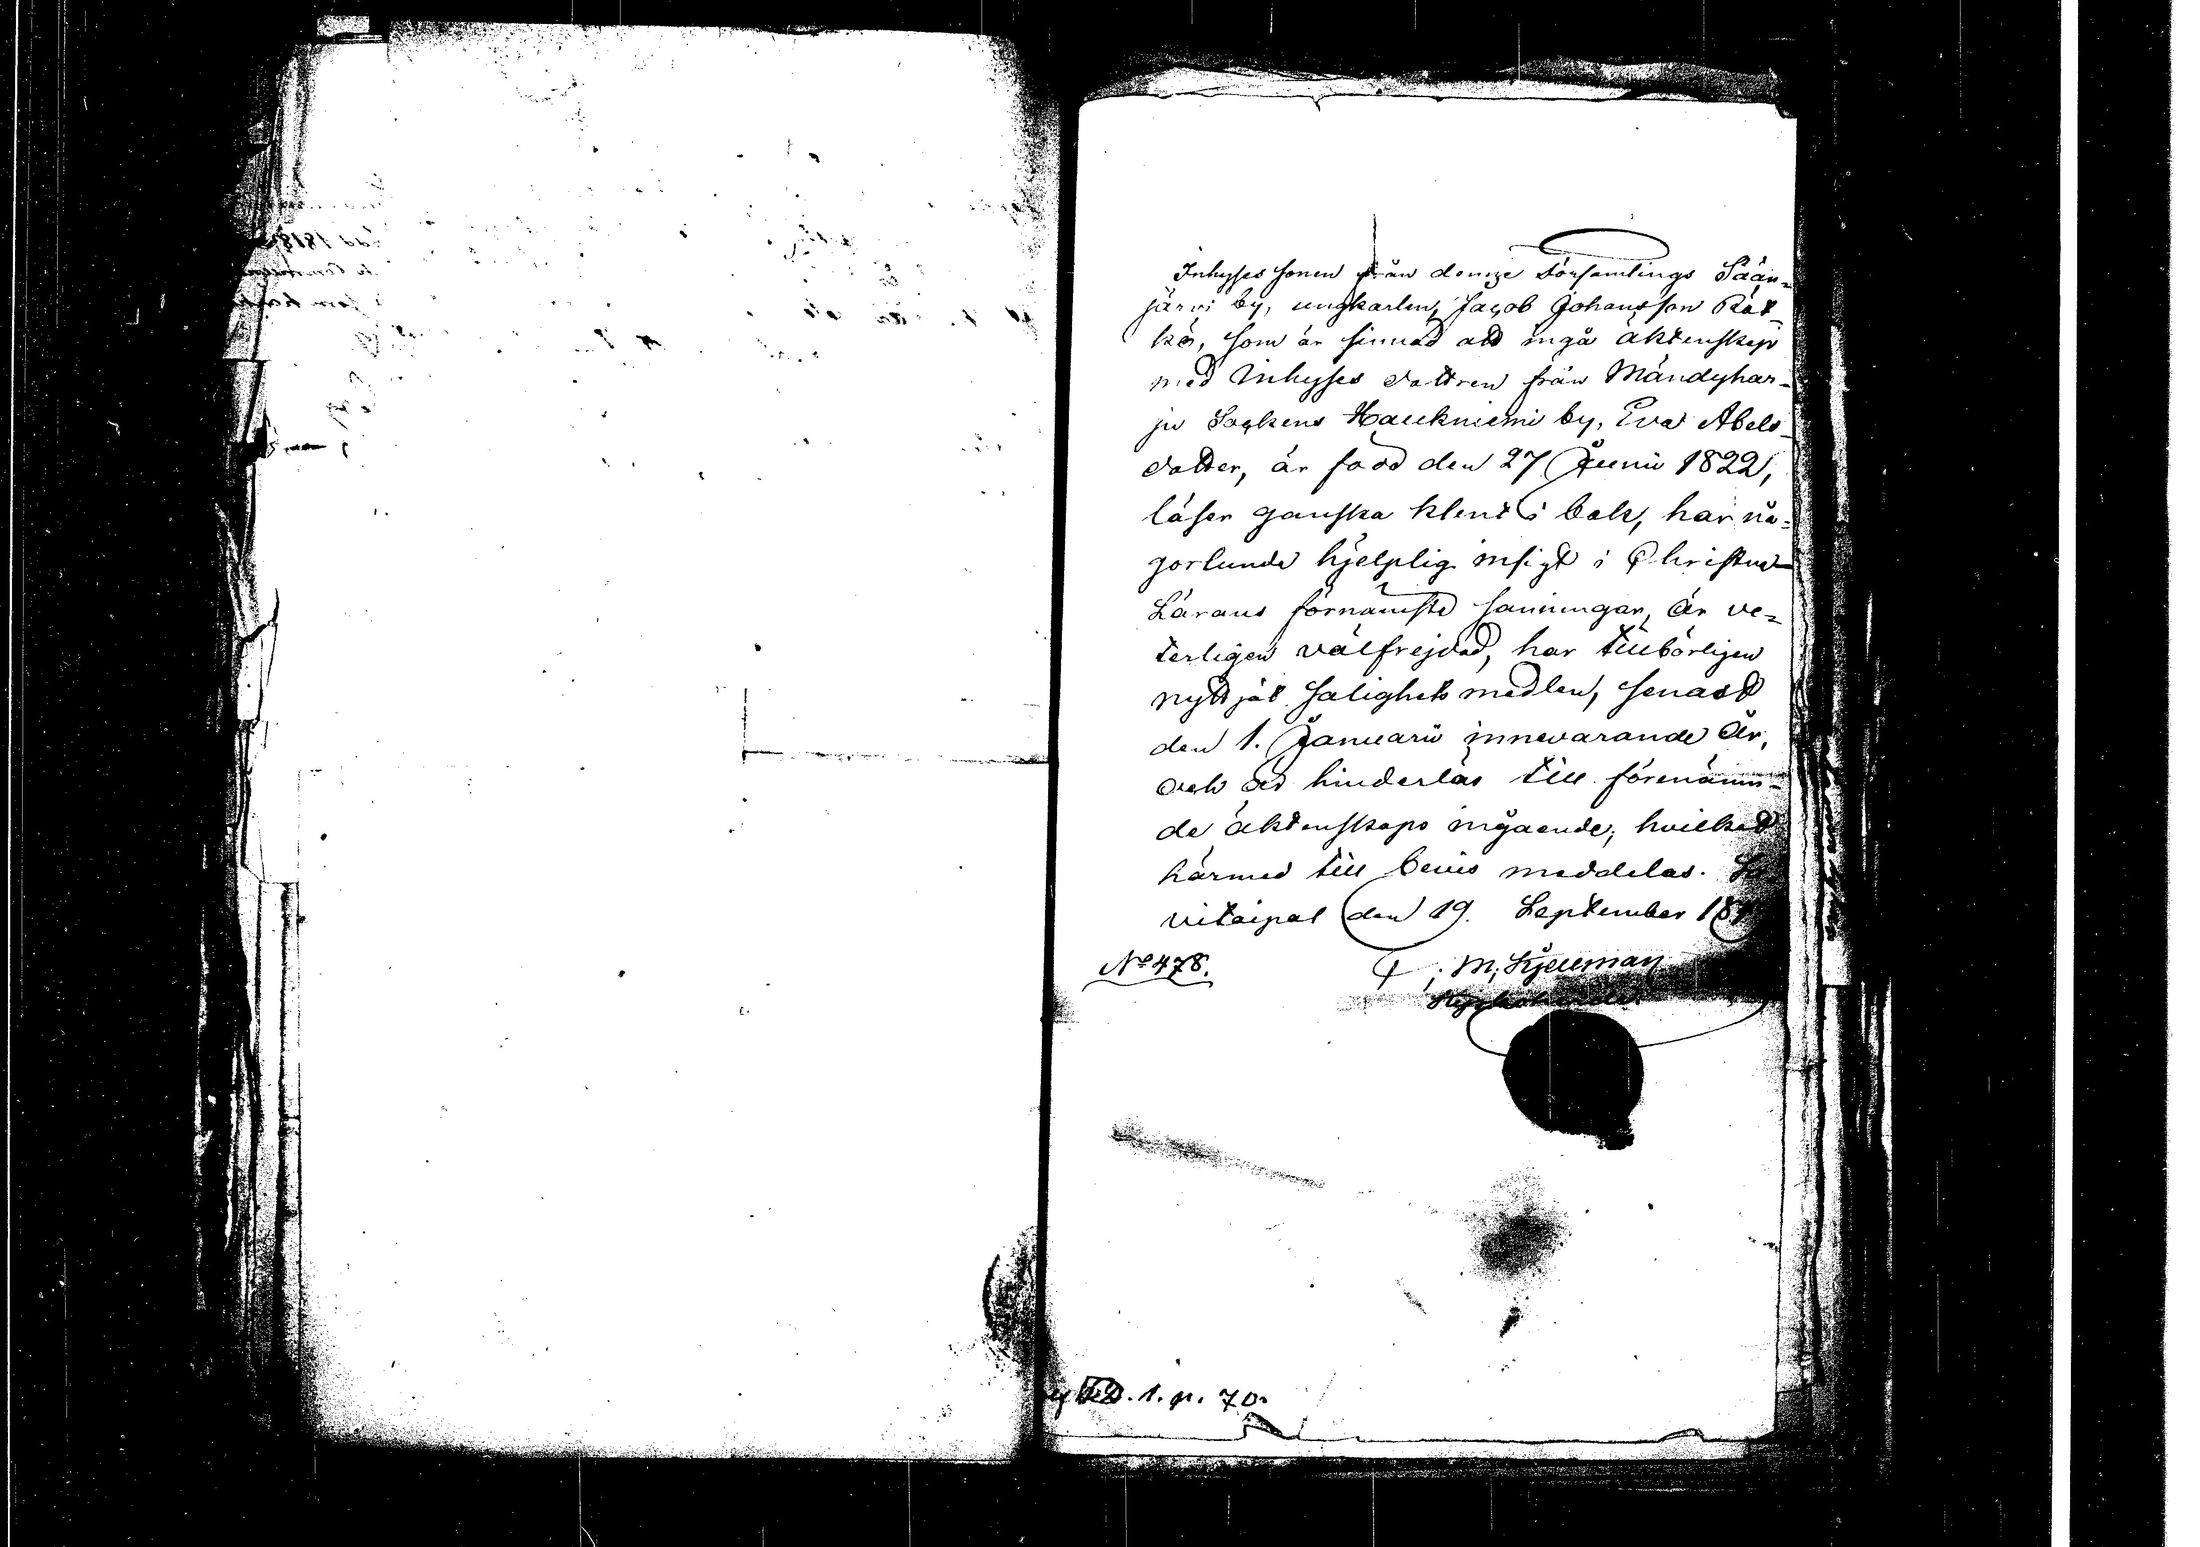 Inhyses sonen från denna Församlings Sään=
järvi by, ungkarlen, Jacob Johansson Rät-
kö, som är sinnad att ingå äktenskap
med Inhyses dottren från Mändyhar-
ju Sockens Haukniemi by, Eva Abels-
dotter, är född den 27 Junii 1822,
läser ganska klent i bok, har nå=
gorlunda hjelplig insigt i Christna
Lärans förnämsta sanningar, är ve=
terligen välfrejdad, har tillbörligen
nyttjat salighets medlen, senast
den 1. Januarii innevarande År,
och är hinderlös till förenämn=
de äktenskaps ingående; hvilket
härmed till bevis meddelas. Sa
vitaipal den 19. September 18
No 478. M. Kjellman
1. p. 70.